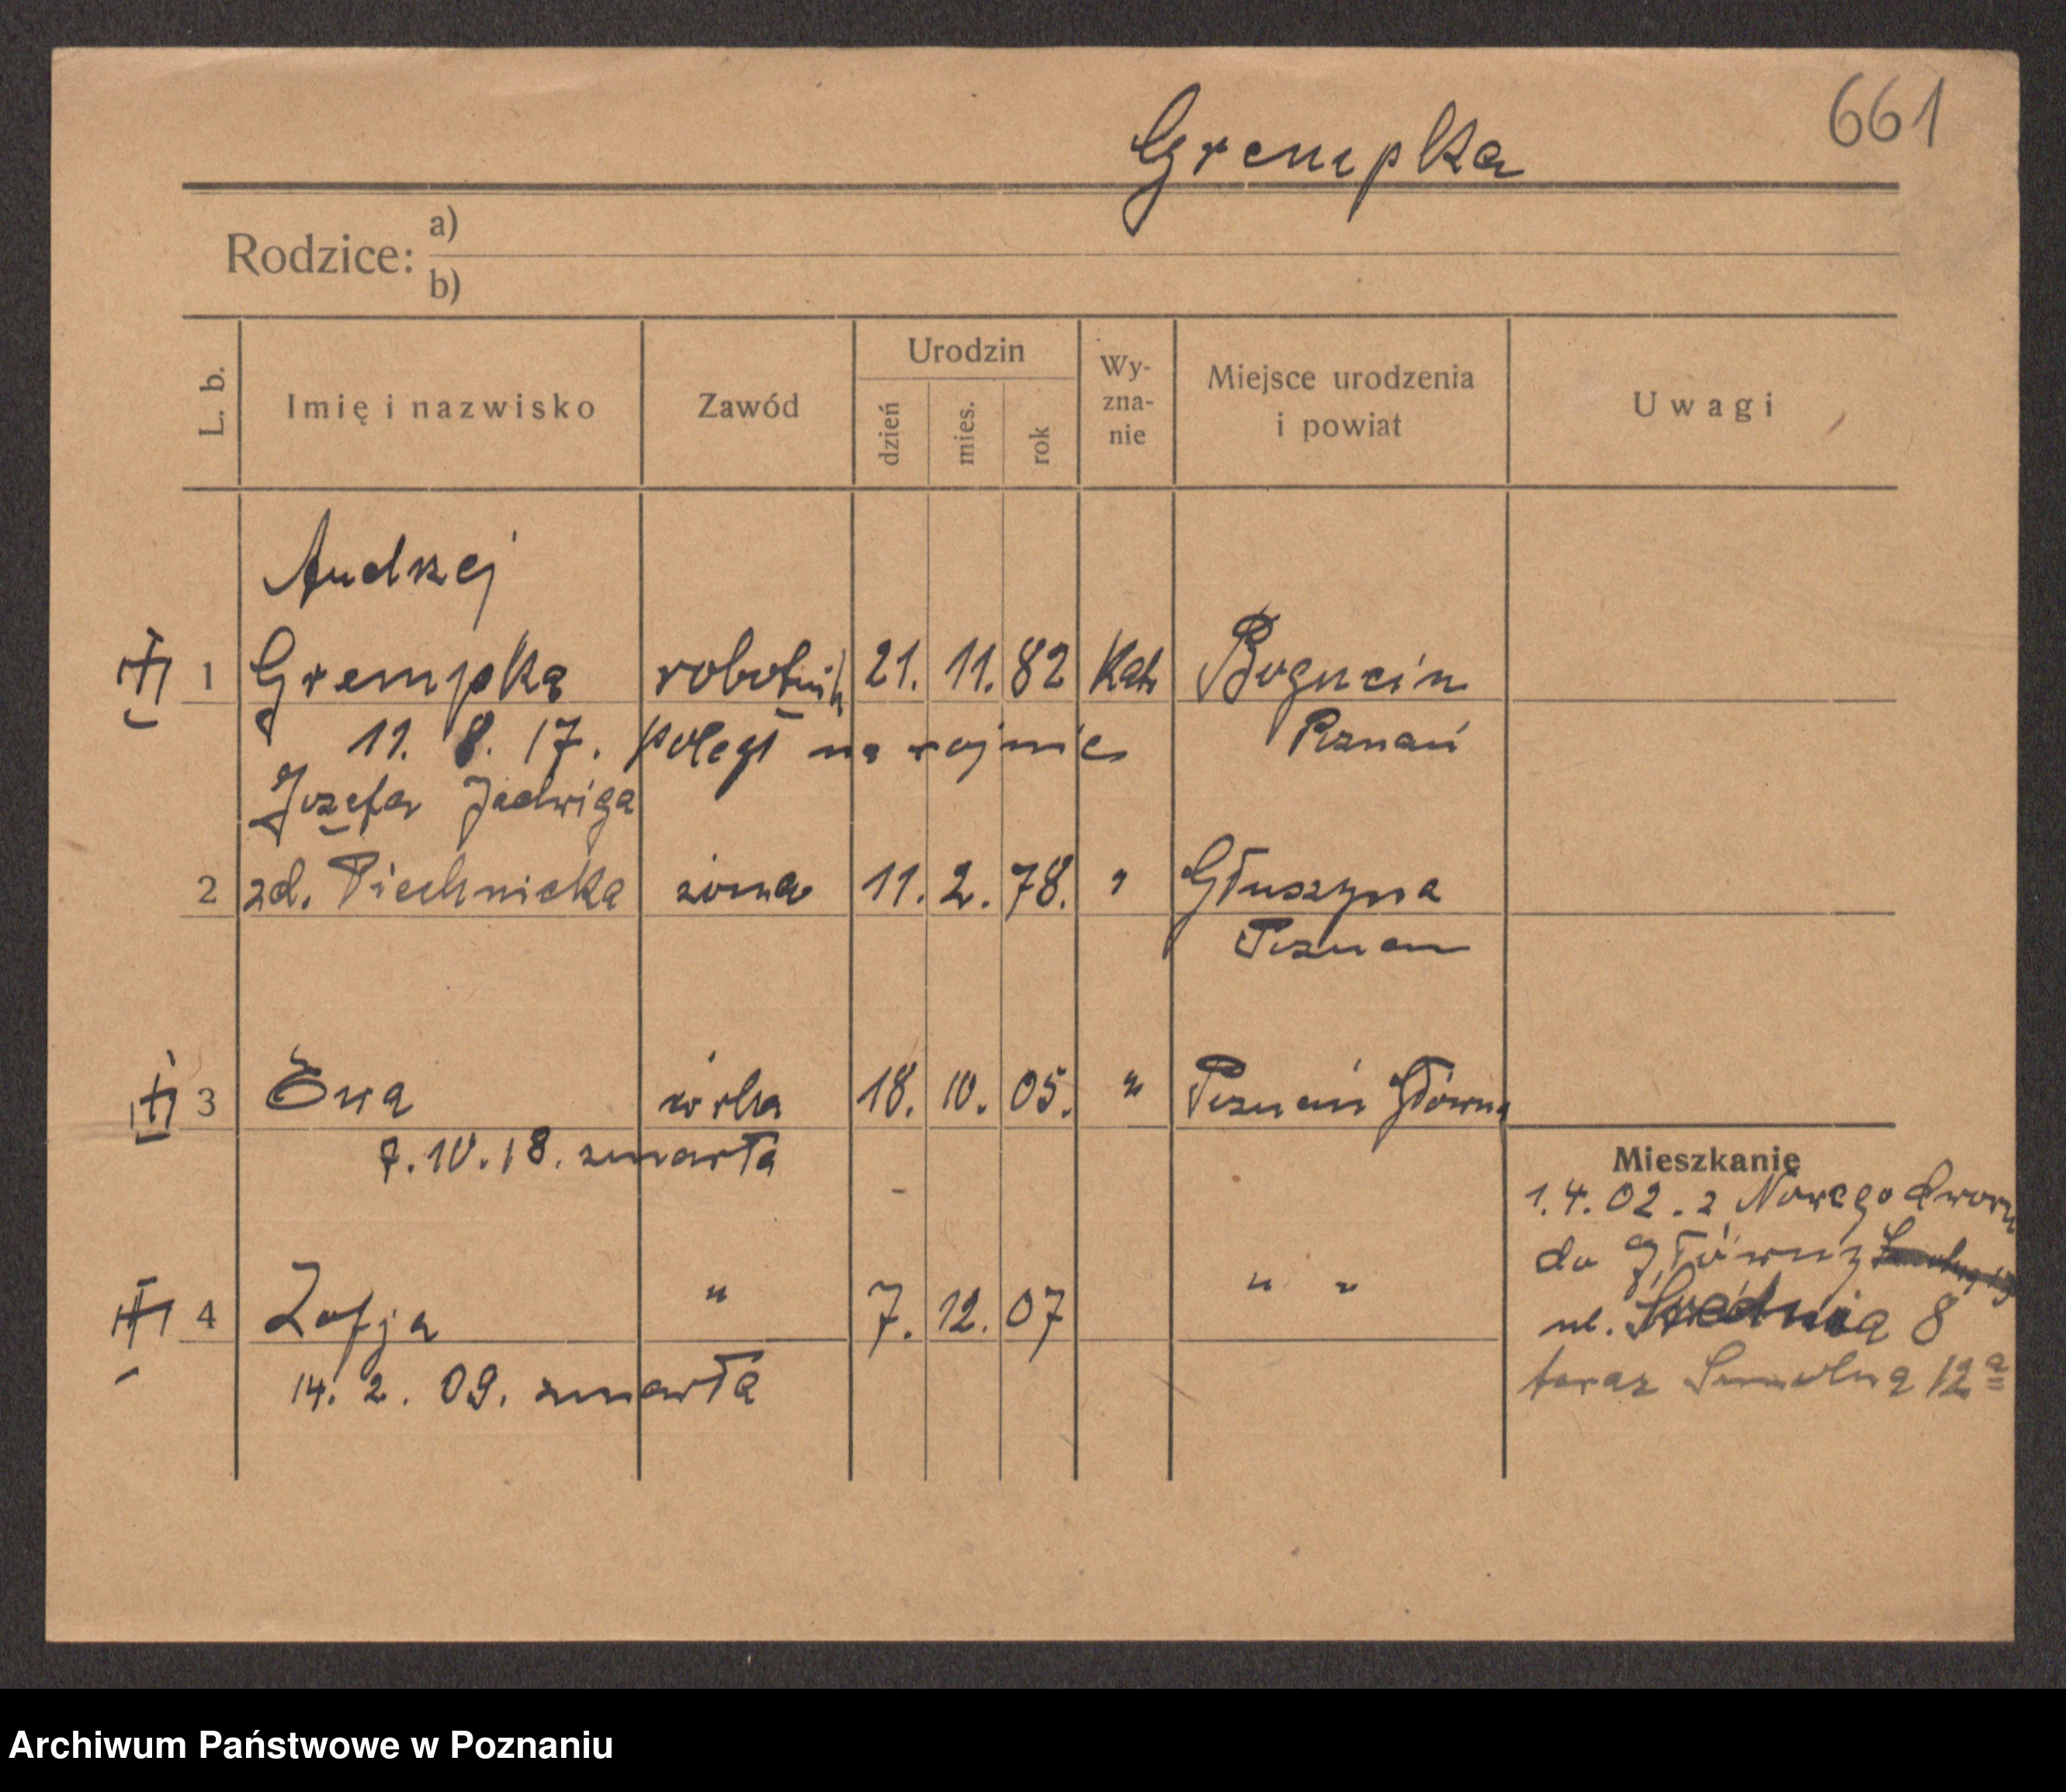 661
Grempka
Rodzice: a)
b)
L. b. Imię i nazwisko Zawód Urodzin dzień mies. rok Wy-zna-nie Miejsce urodzenia i powiat Uwagi
Andrzej
1 Grempka robotnik 21. 11. 82 Kat. Bogucin
11. 8. 17. poległ na wojnie Poznań
Jozefa Jadwiga
2 zd. Piechnicka żona 11. 2. 78. " Głuszyna
Poznan
3 Ewa córka 18. 10. 05. " Poznań Główna
7. 10. 18. zmarła
Mieszkanie
1. 4. 02. z Nowego dworu
do Główny
4 Zofja " 7. 12. 07 " "
ul. Średnia 8
14. 2. 09. zmarła
teraz Smolna 12a
Archiwum Państwowe w Poznaniu